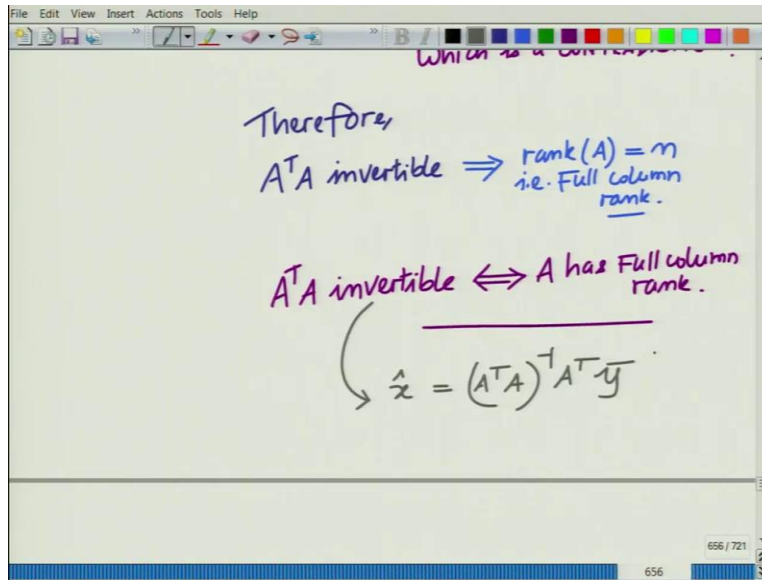 File Edit View Insert Actions Tools Help
which is a
Therefore,
AᵀA invertible ⇒ rank(A) = n
i.e. Full column
rank.
AᵀA invertible ⇔ A has Full column
rank.
x̂ = (AᵀA)⁻¹Aᵀȳ
656 / 721
656